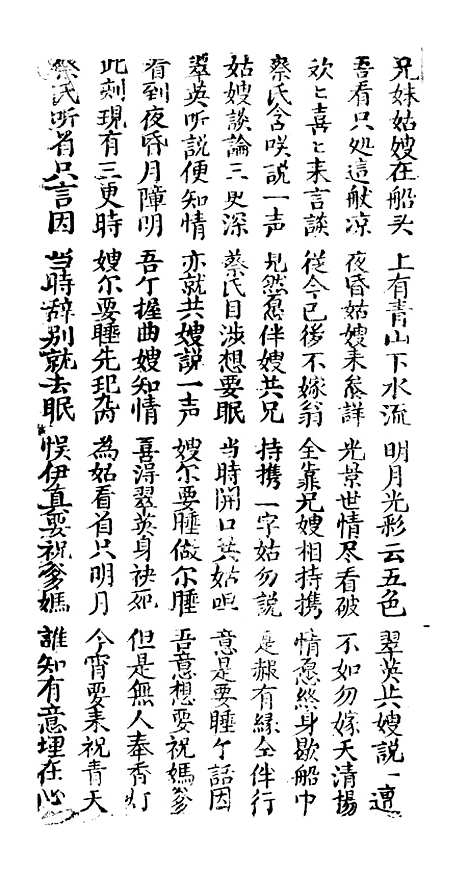 兄妹姑嫂在船头 上有青山下水流 明月光彩云五色 翠英共嫂説一遍
吾看只処這般凉 夜昏姑嫂来參詳 光景世情尽看破 不如勿嫁天清揚
欢々喜々来言談 従今已後不嫁翁 全靠兄嫂相持携 情愿終身歇船中
蔡氏含咲説一声 見然愿伴嫂共兄 持携一字姑勿説 是赧有縁仝伴行
姑嫂談論三更深 蔡氏目涉想要眠 当時開口共姑呾 意是要睡个話因
翠英听説便知情 亦就共嫂説一声 嫂尔要睡做尔睡 吾意想要祝媽爹
看到夜昏月障明 吾个握曲嫂知情 喜得翠英身袂 但是無人奉香灯
此刻現有三更時 嫂尔要睡先 為姑看自只明月 今宵要来祝青天
蔡氏听着只言因 当時辞别就去眠 悮伊直要祝爹媽 誰知有意埋在心